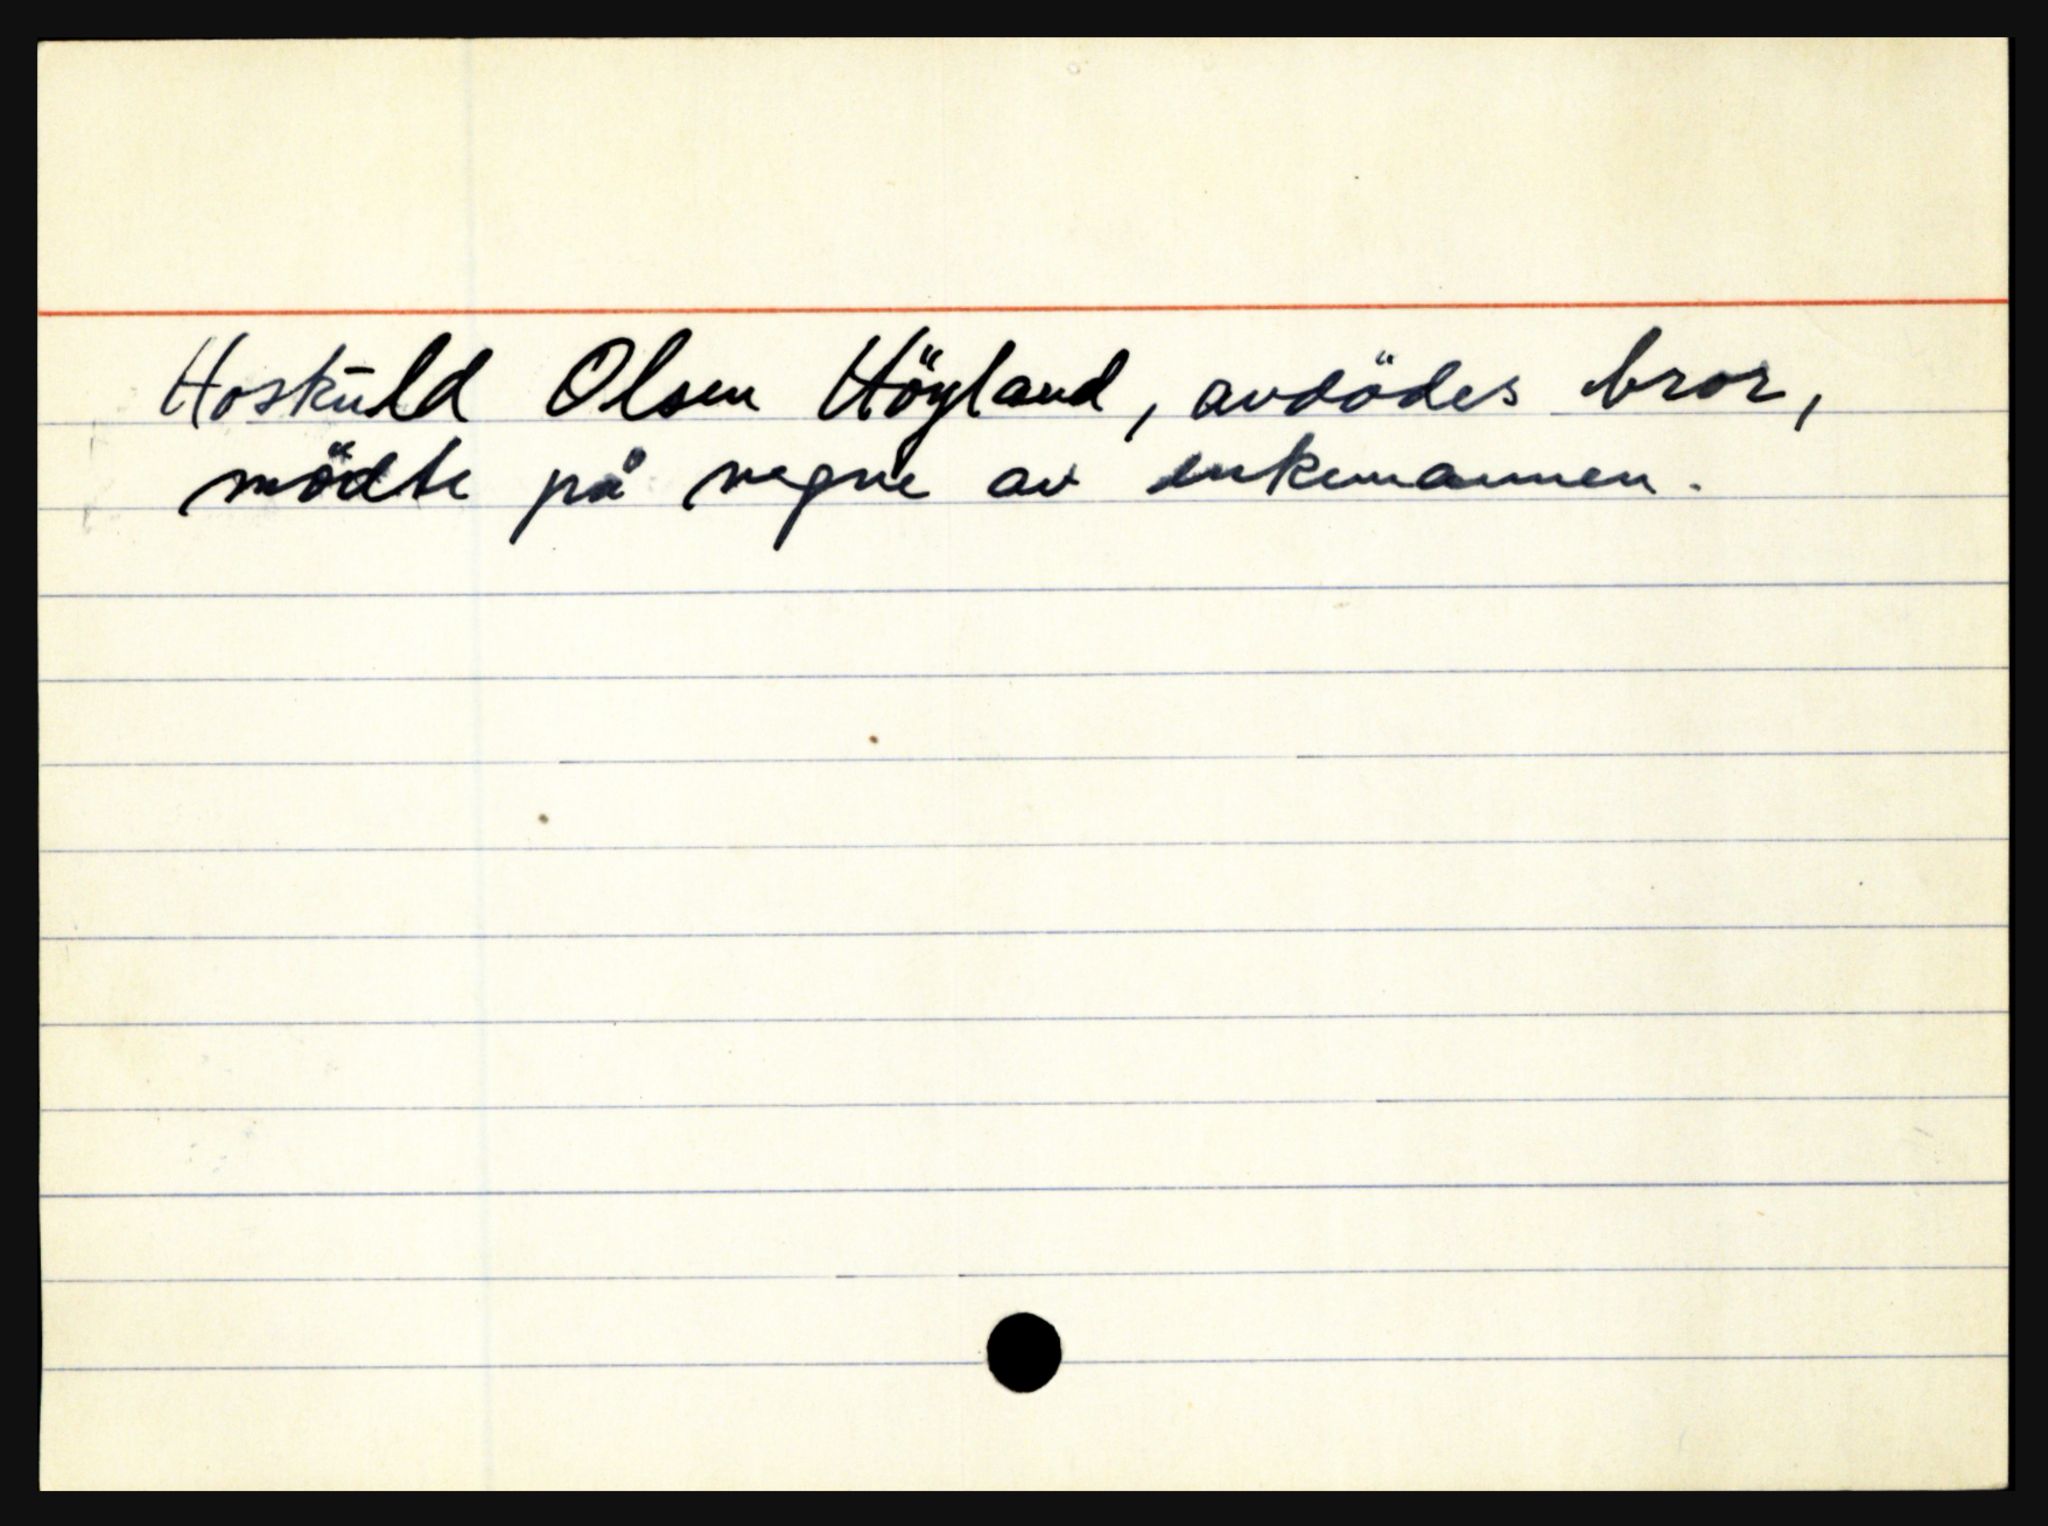 Hoskuld Olsen Höyland, avdödes bror,
mödte på vegne av enkemannen.